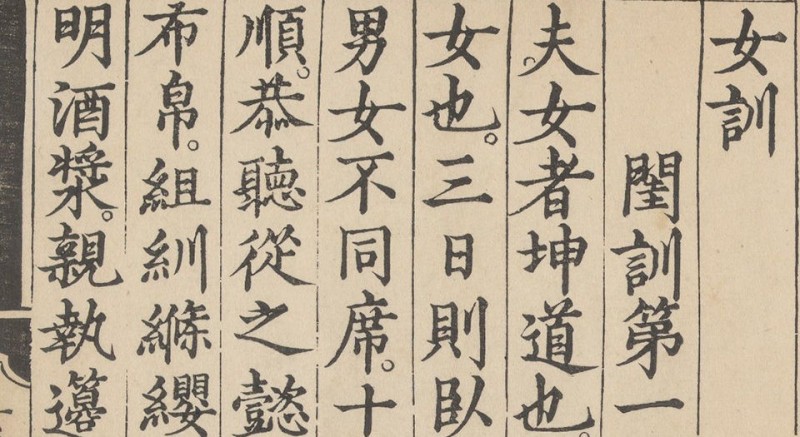 女訓
閨訓第一
夫女者坤道也。
女也。三日則臥
男女不同席。十
順。恭聽從之懿
布帛。組紃縧纓
明酒漿。親執籩